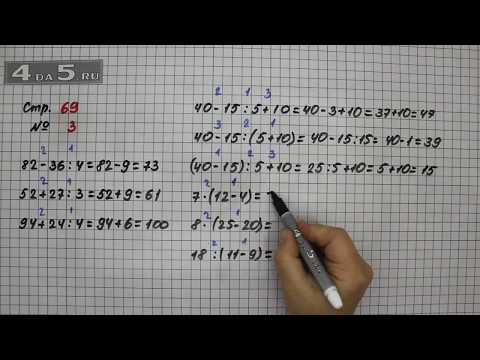 4 DA 5.RU
Стр. 69
№ 3
2 1
82-36:4=82-9=73
2 1
52+27:3=52+9=61
2 1
94+24:4=94+6=100
2 1 3
40-15:5+10=40-3+10=37+10=47
3 2 1
40-15:(5+10)=40-15:15=40-1=39
1 2 3
(40-15):5+10=25:5+10=5+10=15
2 1
7·(12-4)=
2 1
8·(25-20)=
2 1
18:(11-9)=